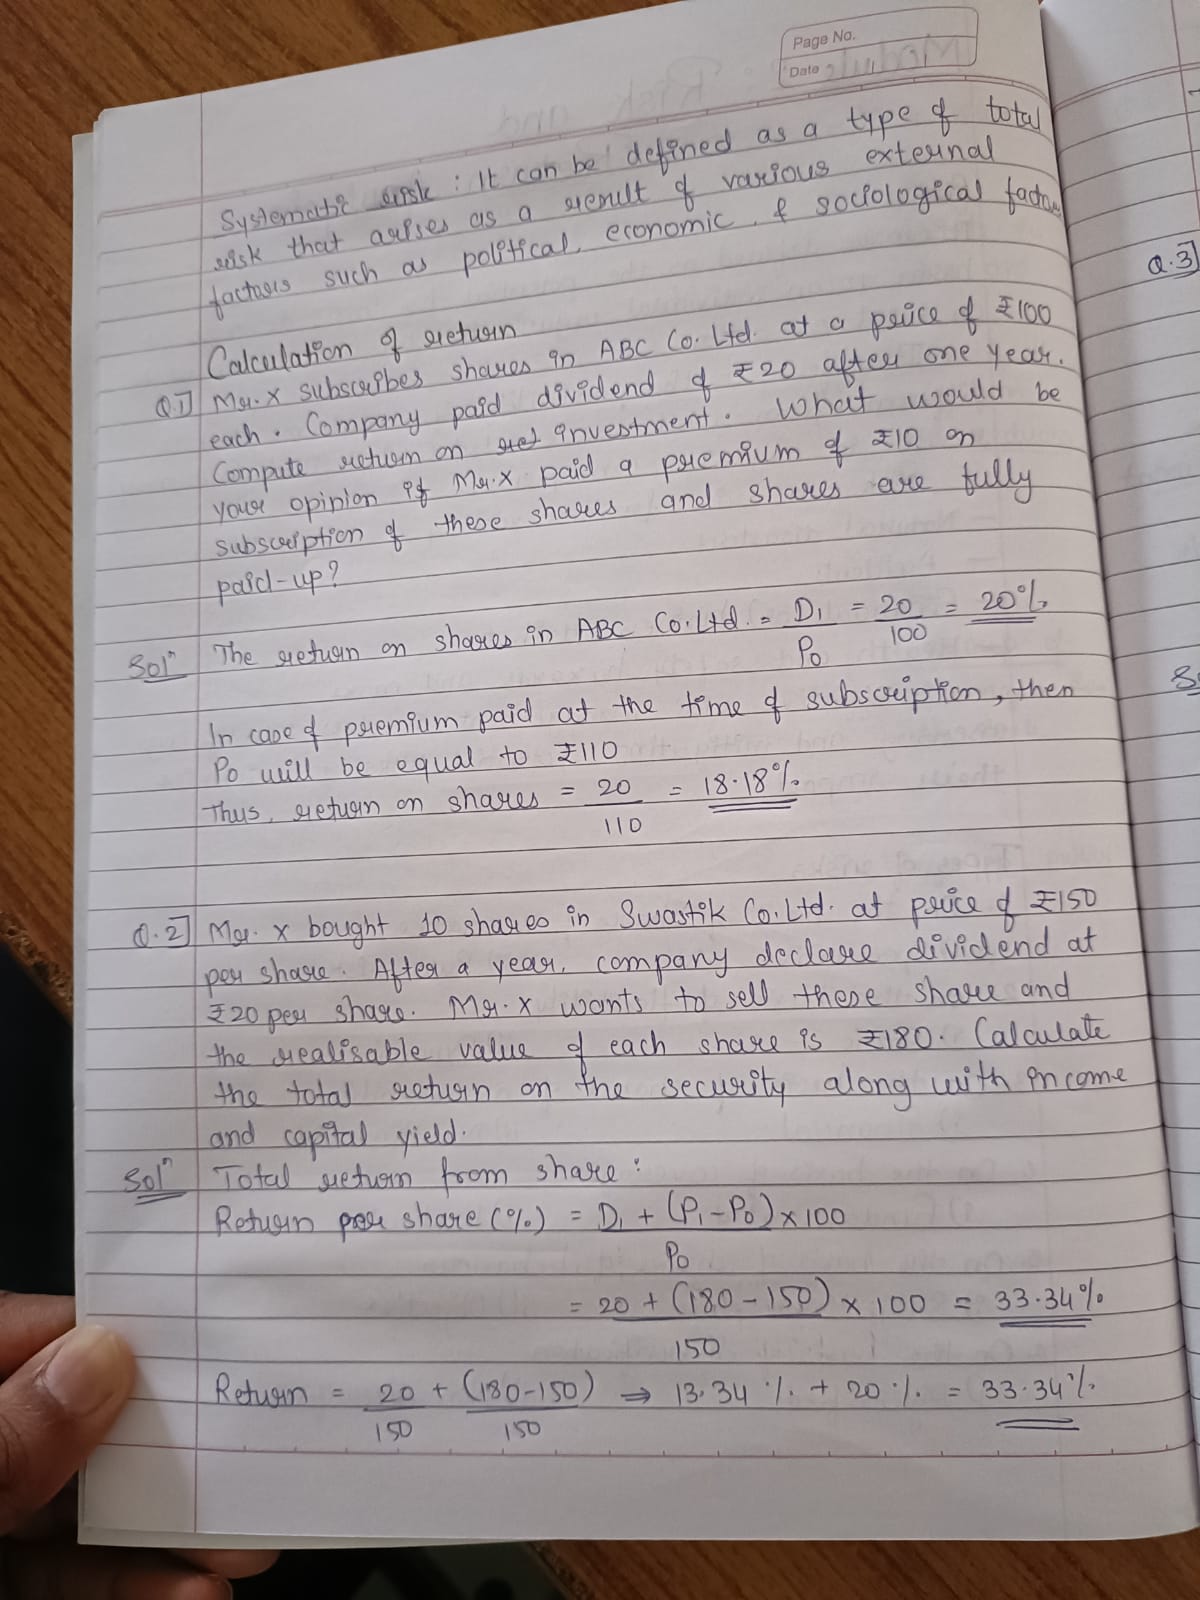 Page No.
Date
Systematic risk : It can be defined as a type of total
risk that arises as a result of various external
factors such as political, economic & sociological factors
Calculation of return
Q.1] Mr. X subscribes shares in ABC Co. Ltd. at a price of ₹100
each. Company paid dividend of ₹20 after one year.
Compute return on investment. What would be
your opinion if Mr. X paid a premium of ₹10 on
subscription of these shares and shares are fully
paid-up?
Solⁿ The return on shares in ABC Co. Ltd. = D₁ / P₀ = 20 / 100 = 20%
In case of premium paid at the time of subscription, then
P₀ will be equal to ₹110
Thus, return on shares = 20 / 110 = 18.18%
Q.2] Mr. X bought 10 shares in Swastik Co. Ltd. at price of ₹150
per share. After a year, company declare dividend at
₹20 per share. Mr. X wants to sell these share and
the realisable value of each share is ₹180. Calculate
the total return on the security along with income
and capital yield.
Solⁿ Total return from share :
Return per share (%) = D₁ + (P₁ - P₀) / P₀ × 100
= 20 + (180 - 150) / 150 × 100 = 33.34%
Return = 20 / 150 + (180 - 150) / 150 ⇒ 13.34 % + 20 % = 33.34%
Q.3]